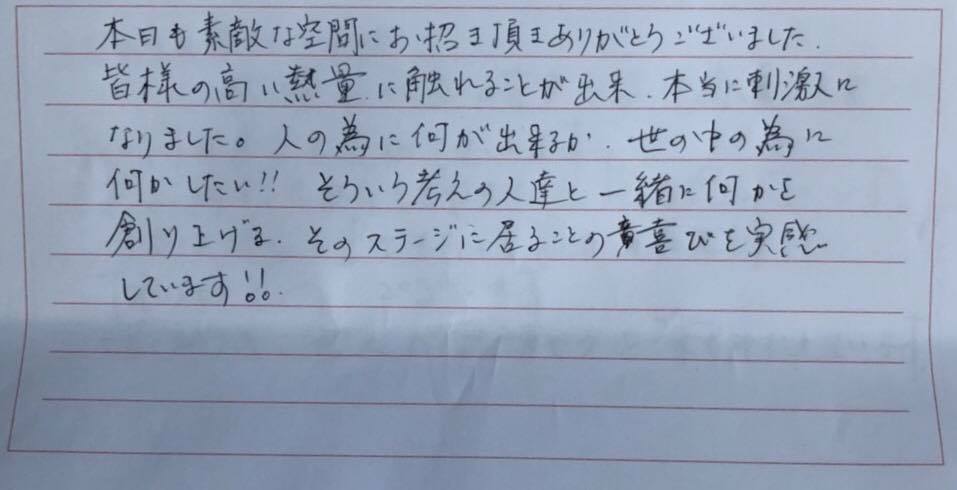 本日も素敵な空間にお招き頂きありがとうございました.
皆様の高い熱量に触れることが出来、本当に刺激に
なりました。人の為に何が出来るか、世の中の為に
何かしたい!! そういう考えの人達と一緒に何かを
創り上げる、そのステージに居ることの喜びを実感
しています!!